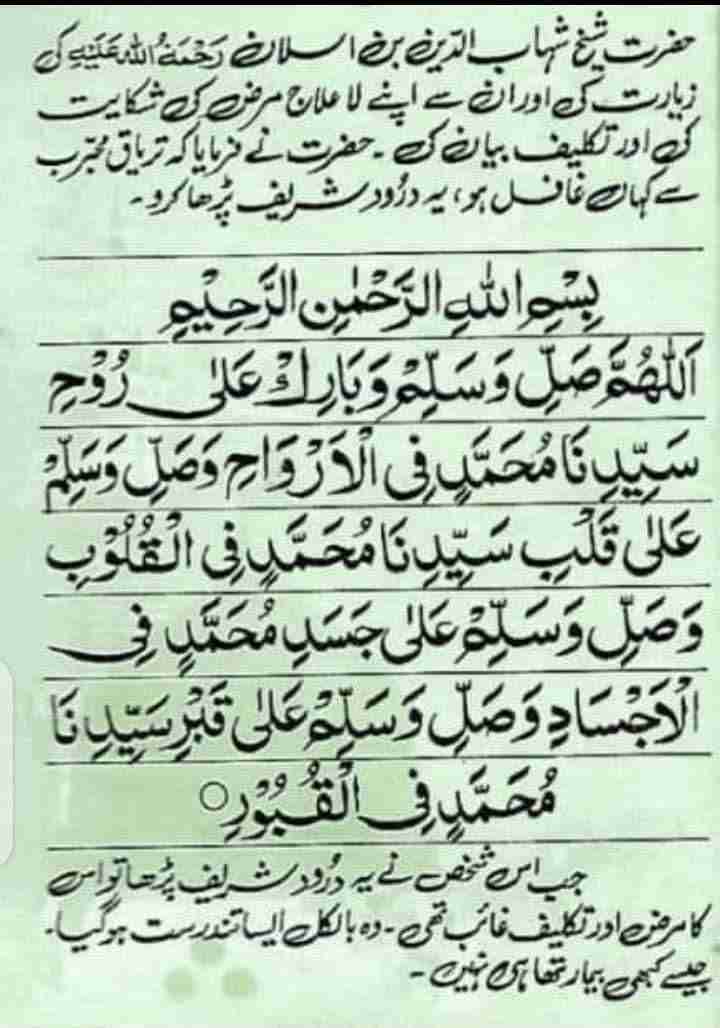 حضرت شیخ شہاب الدین بن اسلان رَحْمَۃُ اللہِ عَلَیْہِ کی
زیارت کی اور ان سے اپنے لا علاج مرض کی شکایت
کی اور تکلیف بیان کی ۔ حضرت نے فرمایا کہ تریاق مجرّب
سے کہاں غافل ہو، یہ درُود شریف پڑھا کرو ۔
بِسْمِ اللهِ الرَّحْمٰنِ الرَّحِيْمِ
اَللّٰهُمَّ صَلِّ وَسَلِّمْ وَبَارِكْ عَلٰى رُوْحِ
سَيِّدِنَا مُحَمَّدٍ فِى الْاَرْوَاحِ وَصَلِّ وَسَلِّمْ
عَلٰى قَلْبِ سَيِّدِنَا مُحَمَّدٍ فِى الْقُلُوْبِ
وَصَلِّ وَسَلِّمْ عَلٰى جَسَدِ مُحَمَّدٍ فِى
الْاَجْسَادِ وَصَلِّ وَسَلِّمْ عَلٰى قَبْرِ سَيِّدِنَا
مُحَمَّدٍ فِى الْقُبُوْرِ ○
جب اس شخص نے یہ درُود شریف پڑھا تو اس
کا مرض اور تکلیف غائب تھی ۔ وہ بالکل ایسا تندرست ہو گیا ۔
جیسے کبھی بیمار تھا ہی نہیں ۔